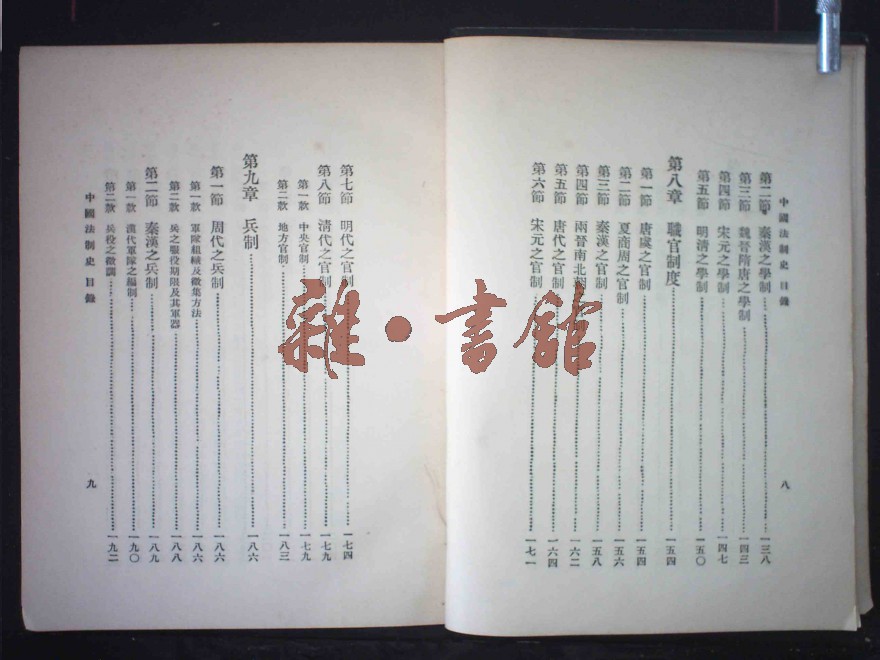 中國法制史 目錄
第二節 秦漢之學制 一三八
第三節 魏晉隋唐之學制 一四三
第四節 宋元之學制 一四七
第五節 明清之學制 一五〇
第八章 職官制度 一五四
第一節 唐虞之官制 一五四
第二節 夏商周之官制 一五六
第三節 秦漢之官制 一五八
第四節 兩晉南北朝 一六二
第五節 唐代之官制 一六四
第六節 宋元之官制 一七一
八
第七節 明代之官制 一七四
第八節 清代之官制 一七九
第一款 中央官制 一七九
第二款 地方官制 一八三
第九章 兵制 一八六
第一節 周代之兵制 一八六
第一款 軍隊組織及徵集方法 一八六
第二款 兵之服役期限及其軍器 一八八
第二節 秦漢之兵制 一八九
第一款 漢代軍隊之編制 一九〇
第二款 兵役之徵調 一九二
中國法制史 目錄
九
雜·書館